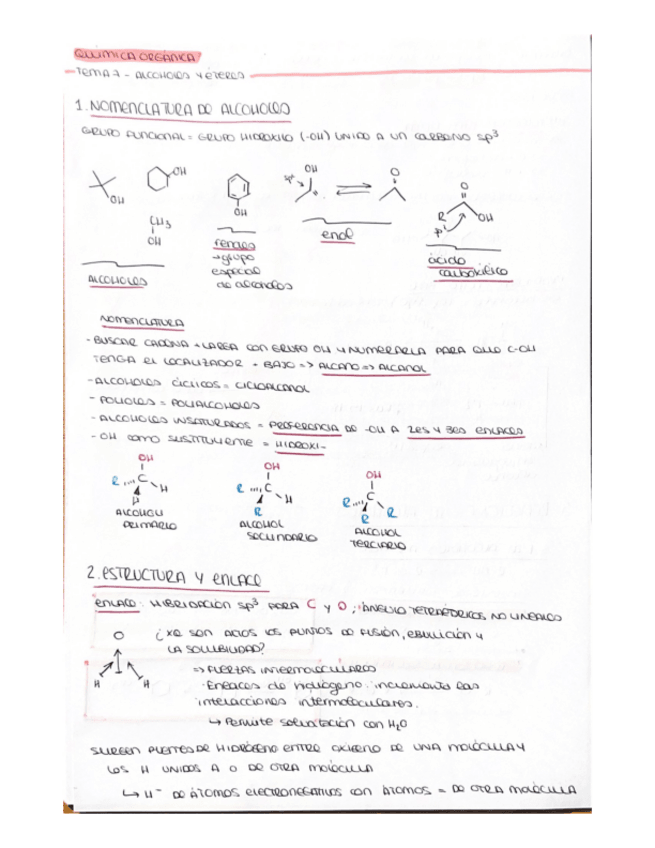 QUIMICA ORGÁNICA
TEMA 7 - ALCOHOLES Y ÉTERES
1. NOMENCLATURA DE ALCOHOLES
GRUPO FUNCIONAL = GRUPO HIDROXILO (-OH) UNIDO A UN CARBONO sp3
OH
OH
CH3
OH
ALCOHOLES
OH
fenoles
→ grupo
especial
de alcoholes
sp2
OH
enol
O
O
R
OH
ácido
carboxílico
NOMENCLATURA
- BUSCAR CADENA + LARGA CON GRUPO OH Y NUMERARLA PARA QUE C-OH
TENGA EL LOCALIZADOR + BAJO => ALCANO => ALCANOL
- ALCOHOLES CÍCLICOS = CICLOALCANOL
- POLIOLES = POLIALCOHOLES
- ALCOHOLES INSATURADOS = PREFERENCIA DE -OH A 2ES Y 3ES ENLACES
- OH COMO SUSTITUYENTE = HIDROXI-
OH
R C H
H
ALCOHOL
PRIMARIO
OH
R C H
R
ALCOHOL
SECUNDARIO
OH
R C R
R
ALCOHOL
TERCIARIO
2. ESTRUCTURA Y ENLACE
ENLACE: HIBRIDACIÓN sp3 PARA C Y O; ÁNGULO TETRAÉDRICOS NO LINEALES
O
H H
¿XQ SON ALTOS LOS PUNTOS DE FUSIÓN, EBULLICIÓN Y
LA SOLUBILIDAD?
=> FUERZAS INTERMOLECULARES
Enlaces de hidrógeno: incrementa las
interacciones intermoleculares.
↳ Permite solvatación con H2O
SURGEN PUENTES DE HIDRÓGENO ENTRE OXÍGENO DE UNA MOLÉCULA Y
LOS H UNIDOS A O DE OTRA MOLÉCULA
↳ H- DE ÁTOMOS ELECTRONEGATIVOS CON ÁTOMOS = DE OTRA MOLÉCULA